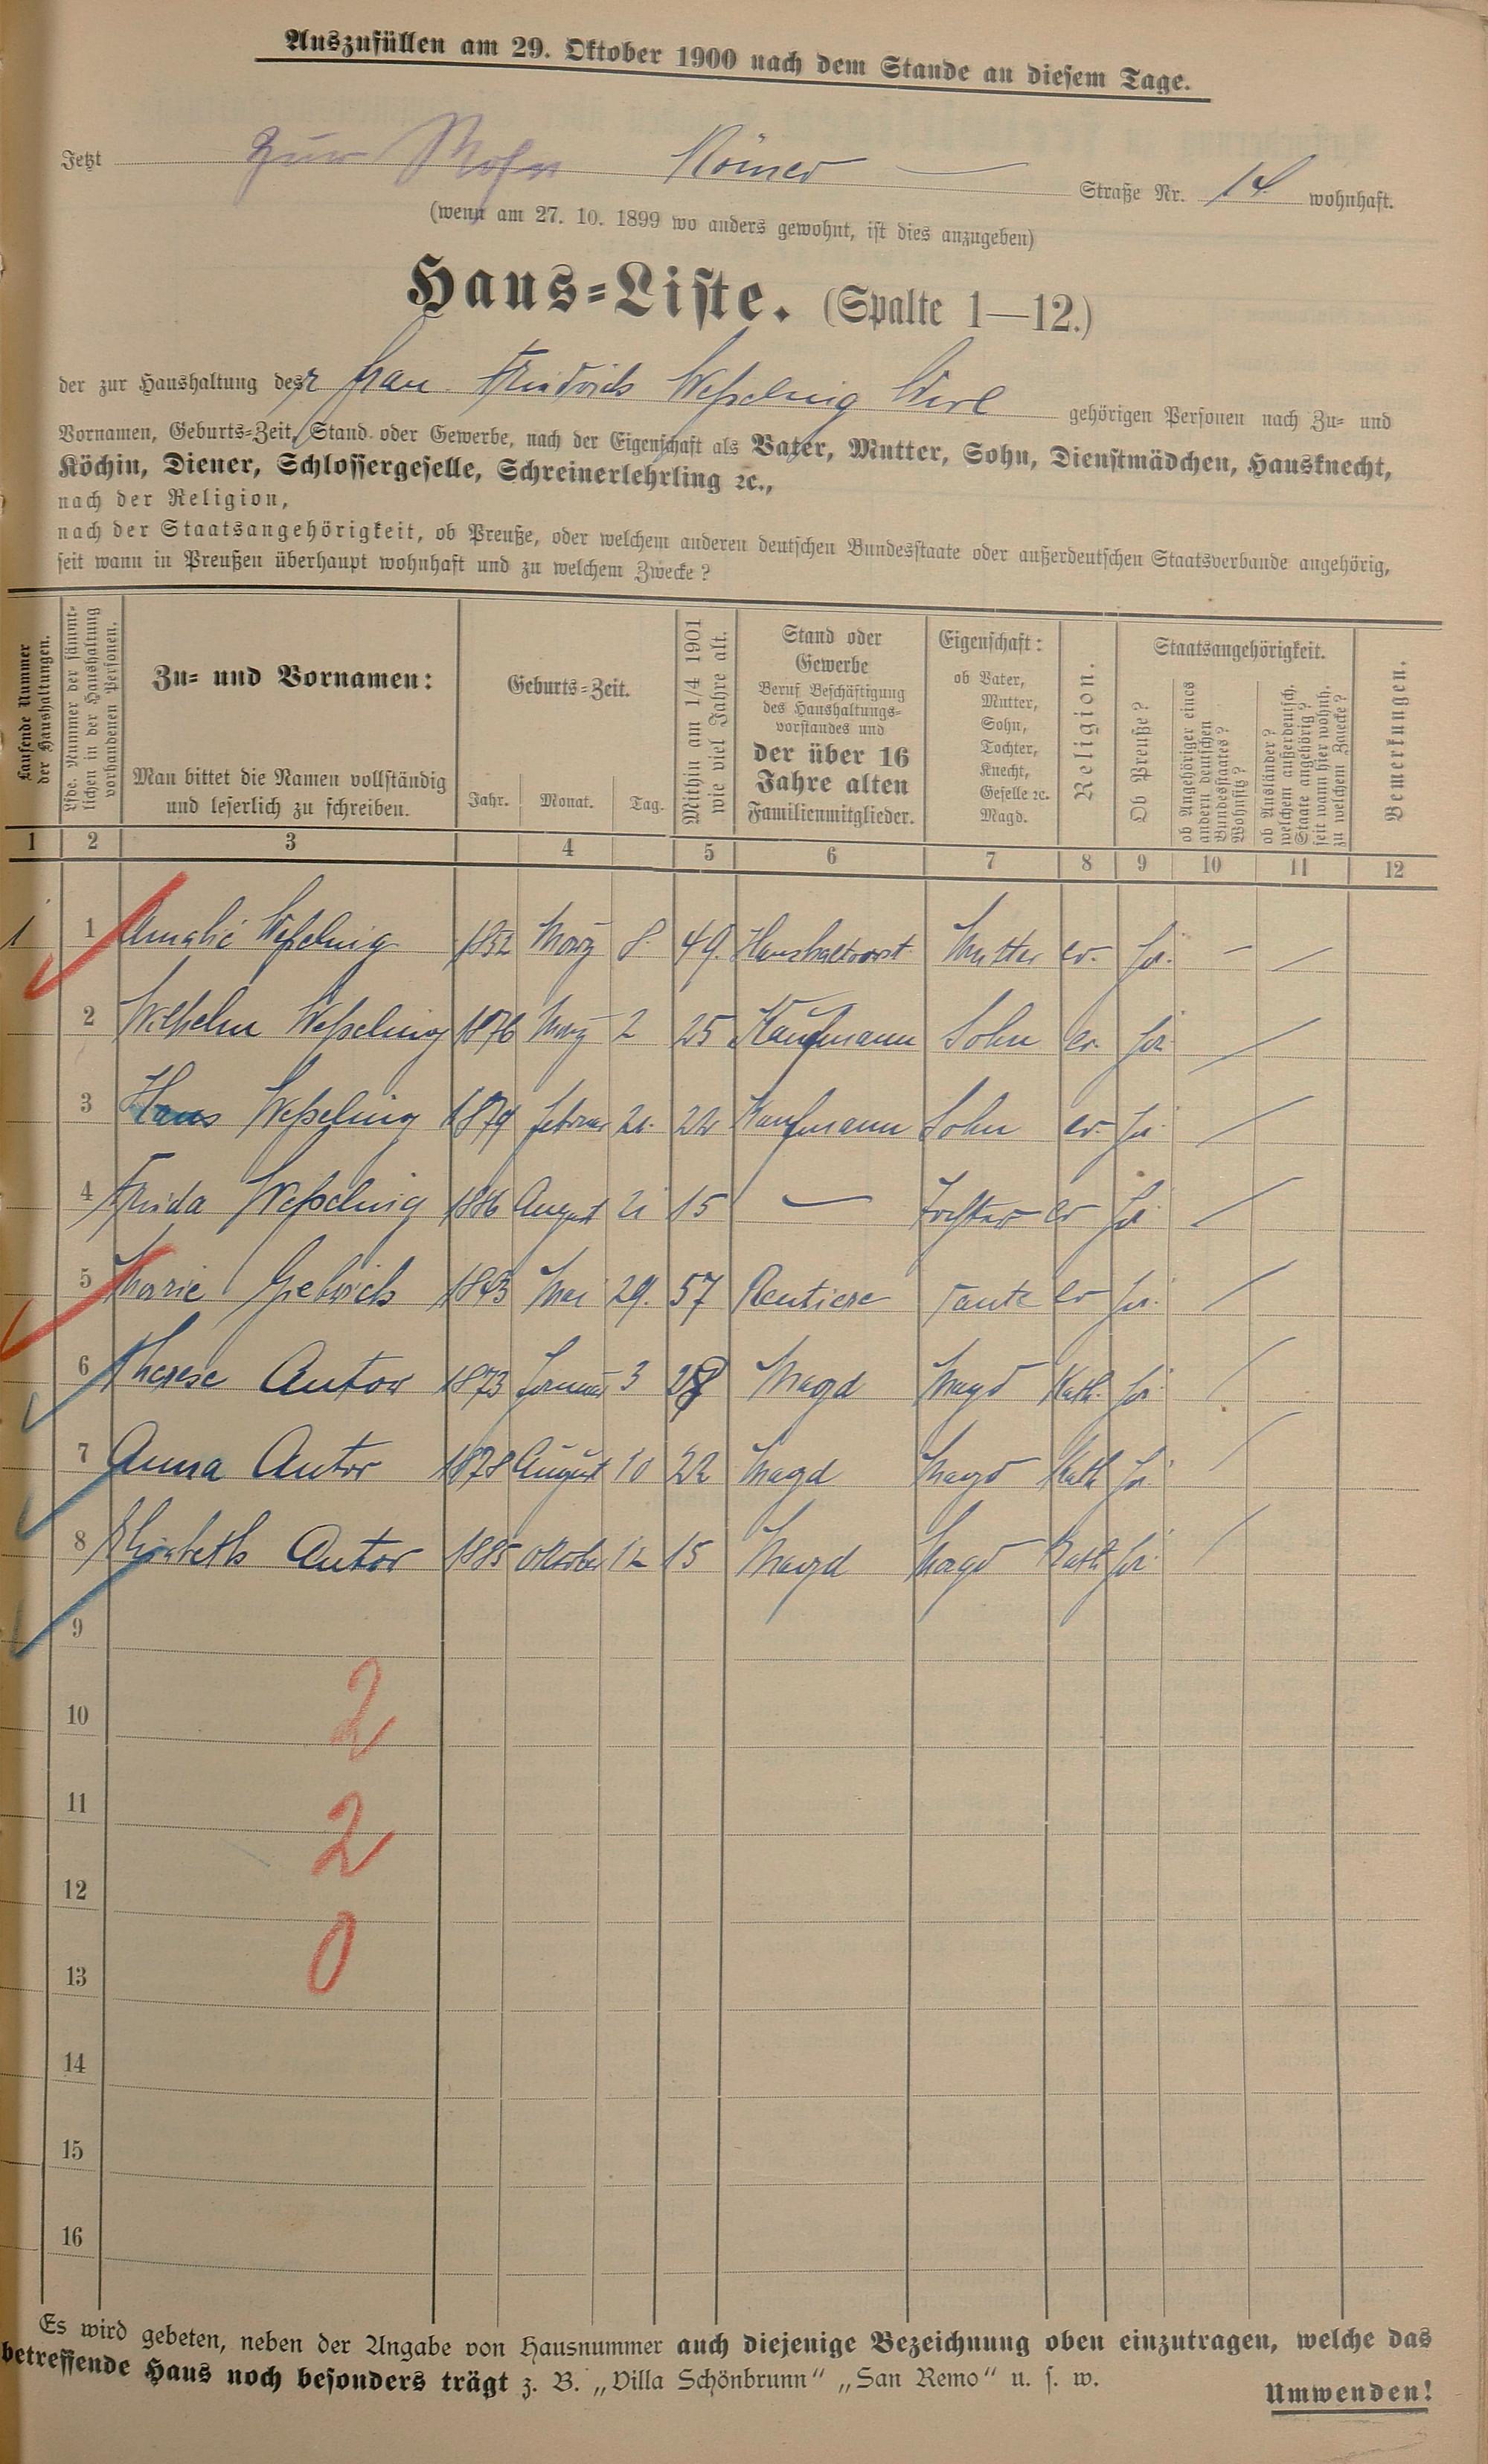 Auszufüllen am 29. Oktober 1900 nach dem Stande an diesem Tage.
Jetzt zur Römer Straße Nr. 14 wohnhaft.
(wenn am 27. 10. 1899 wo anders gewohnt, ist dies anzugeben)
Haus-Liste. (Spalte 1—12.)
der zur Haushaltung der Frau Friedrich Weßeling Wwe gehörigen Personen nach Zu- und
Vornamen, Geburts-Zeit, Stand oder Gewerbe, nach der Eigenschaft als Vater, Mutter, Sohn, Dienstmädchen, Hausknecht,
Köchin, Diener, Schlossergeselle, Schreinerlehrling ꝛc.,
nach der Religion,
nach der Staatsangehörigkeit, ob Preuße, oder welchem anderen deutschen Bundesstaate oder außerdeutschen Staatsverbande angehörig,
seit wann in Preußen überhaupt wohnhaft und zu welchem Zwecke?
Laufende Nummer
der Haushaltungen.
Lfde. Nummer der sämmt-
lichen in der Haushaltung
vorhandenen Personen.
Zu- und Vornamen:
Man bittet die Namen vollständig
und leserlich zu schreiben.
Geburts-Zeit.
Jahr. Monat. Tag.
Mithin am 1/4 1901
wie viel Jahre alt.
Stand oder
Gewerbe
Beruf Beschäftigung
des Haushaltungs-
vorstandes und
der über 16
Jahre alten
Familienmitglieder.
Eigenschaft:
ob Vater,
Mutter,
Sohn,
Tochter,
Knecht,
Geselle ꝛc.
Magd.
Religion.
Staatsangehörigkeit.
Ob Preuße?
ob Angehöriger eines
andern deutschen
Bundesstaates?
Wohnsitz?
ob Ausländer?
welchem außerdeutsch.
Staate angehörig?
seit wann hier wohnh.
zu welchem Zwecke?
Bemerkungen.
1 2 3 4 5 6 7 8 9 10 11 12
1 1 Amalie Weßeling 1852 März 8. 49. Haushaltvorst. Mutter ev. ja. — —
2 Wilhelm Weßeling 1876 März 2 25 Kaufmann Sohn ev. ja
3 Hans Weßeling 1879 Februar 21. 22 Kaufmann Sohn ev. ja.
4 Frieda Weßeling 1886 August 21 15 — Tochter ev ja
5 Marie 1843 Mai 29. 57 Rentiere Tante ev ja.
6 Therese Antor 1873 Januar 3 28 Magd Magd Kath. ja.
7 Anna Antor 1878 August 10 22 Magd Magd Kath ja
8 Elisabeth Antor 1885 Oktober 12 15 Magd Magd Kath ja.
9
10
2
11
2
12
0
13
14
15
16
Es wird gebeten, neben der Angabe von Hausnummer auch diejenige Bezeichnung oben einzutragen, welche das
betreffende Haus noch besonders trägt z. B. „Villa Schönbrunn“ „San Remo“ u. s. w.
Umwenden!